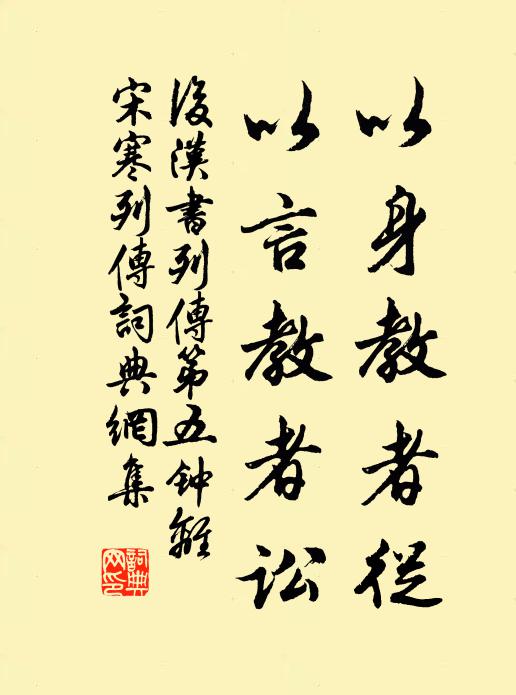 以身教者從
以言教者訟
後漢書列傳第五鈡離
宋寒列傳詞典網集
詞典網印